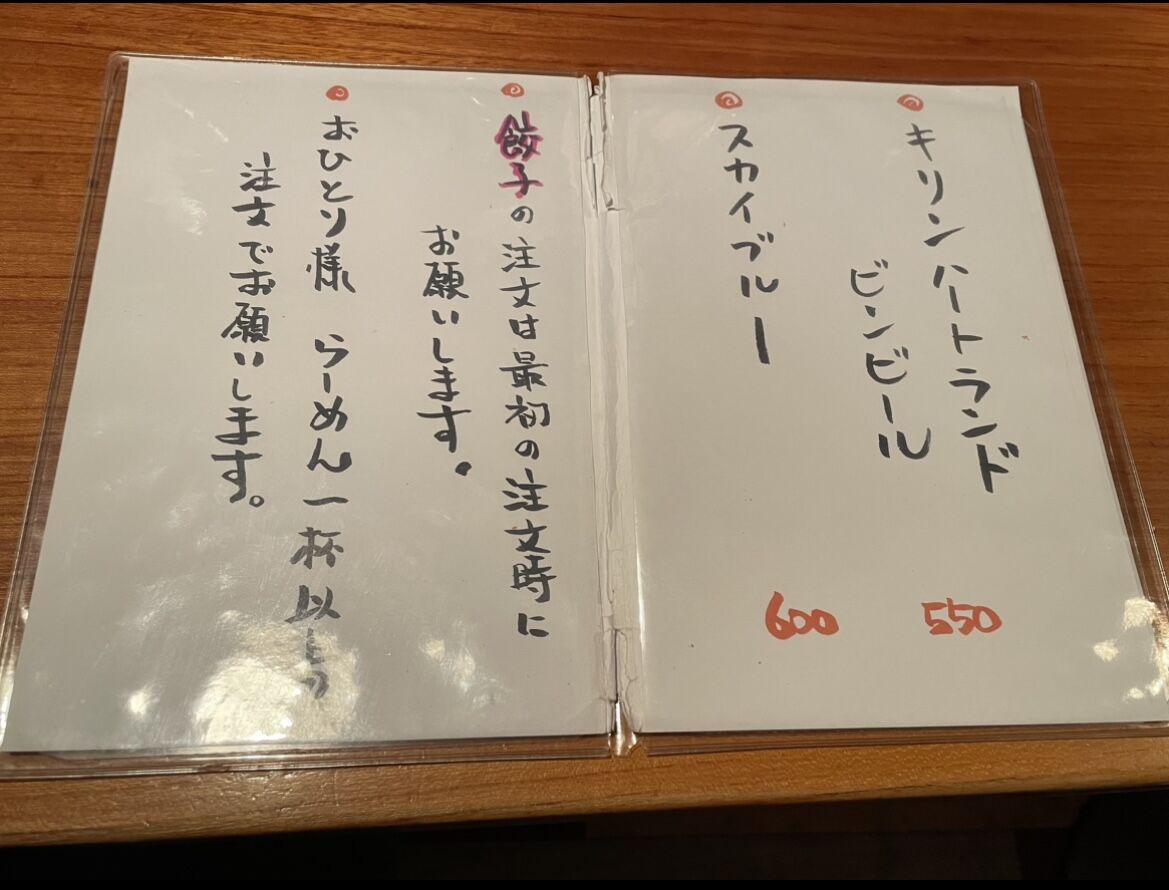 キリンハートランド
ビンビール
550
スカイブルー
600
餃子の注文は最初の注文時に
お願いします。
おひとり様 らーめん一杯以上の
注文でお願いします。